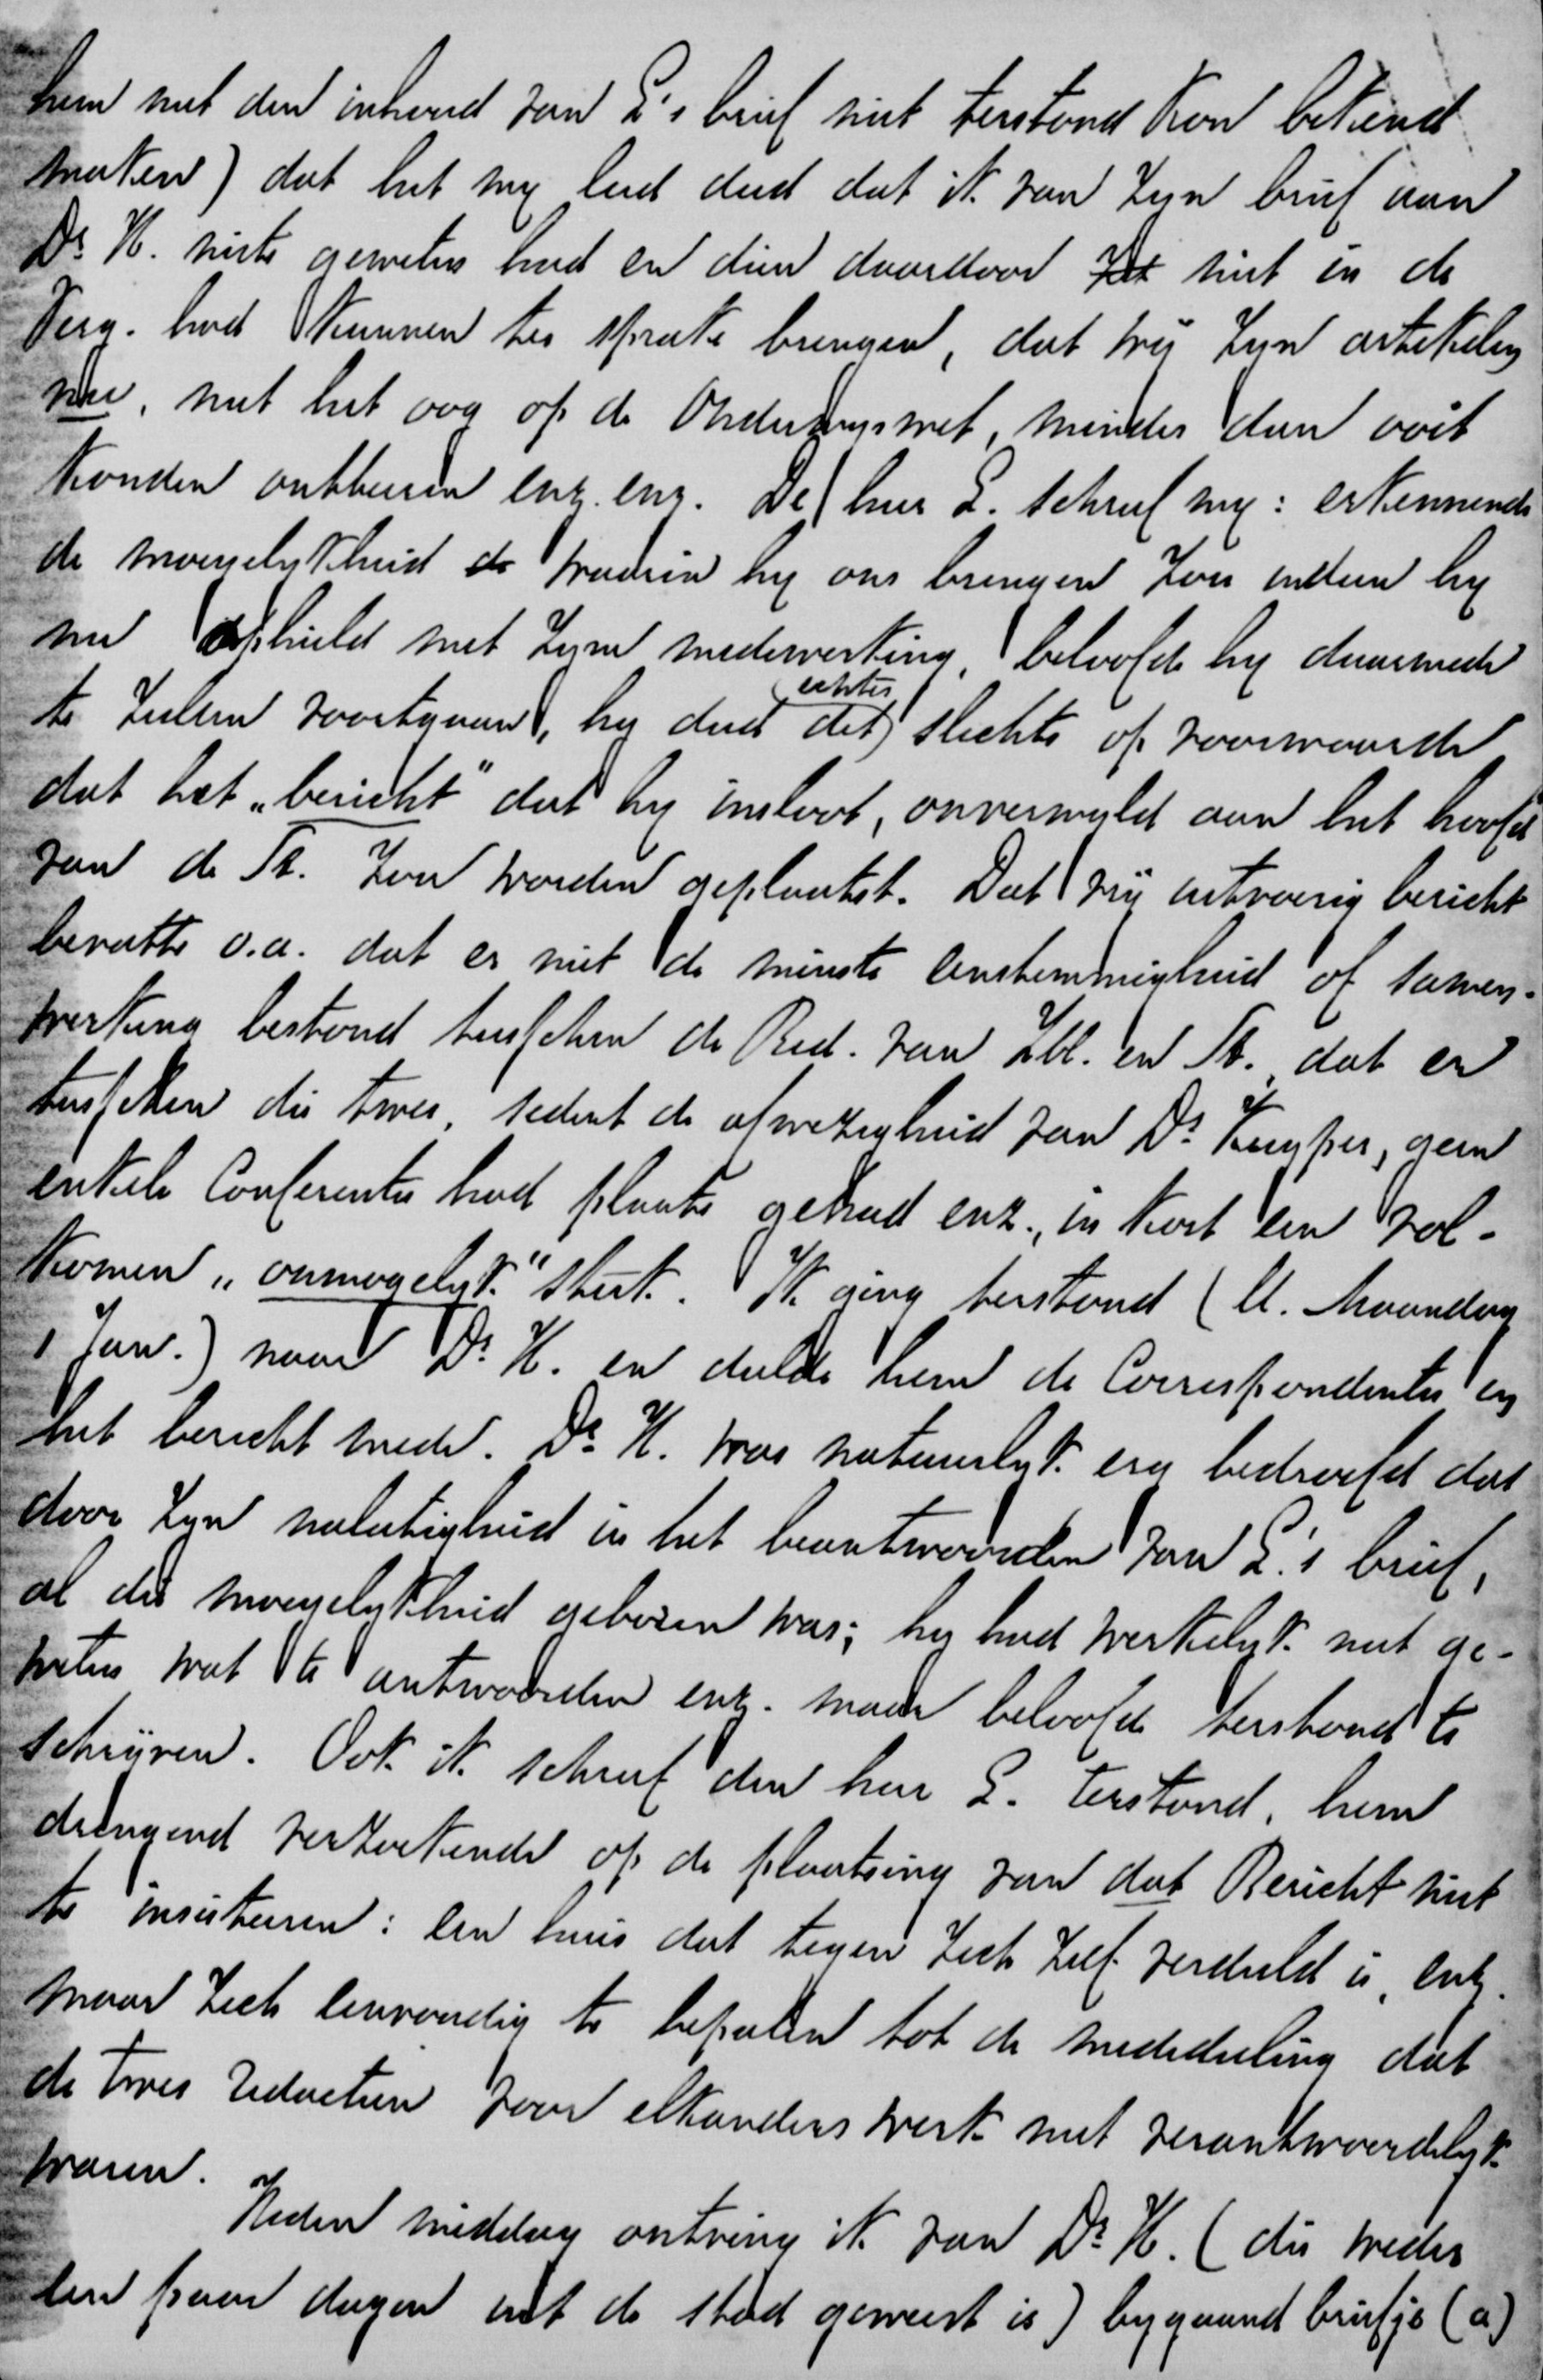 hem met den inhoud van L's brief niet terstond kon bekend
maken) dat het my leed deed dat ik van zyn brief aan
Dr. H. niets geweten had en dien daardoor niet in de
Verg. had kunnen ter sprake brengen, dat wij zyn artikelen
nu, met het oog op de Onderwyswet, minder dan ooit
konden ontbeeren enz. enz. De heer L. schreef my: erkennende
de moeyelykheid de waarin hy ons brengen zou indien hy
nu ophield met zyne medewerking, beloofde hy daarmede
te zullen voortgaan, hy deed dit echter slechts op voorwaarde
dat het „bericht" dat hy insloot, onverwyld aan het hoofd
van de St. zou worden geplaatst. Dat vrij uitvoerig bericht
bevatte o.a. dat er niet de minste eenstemmigheid of samen-
werking bestond tusschen de Red. van Zbl. en St., dat er
tusschen die twee, sedert de afwezigheid van Dr. Kuyper, geen
enkele Conferentie had plaats gehad enz., in kort een vol-
komen „onmogelyk" stuk. Ik ging terstond (ll. Maandag
1 Jan.) naar Dr. H. en deelde hem de Correspondentie en
het bericht mede. Dr. H. was natuurlyk erg bedroefd dat
door zyn nalatigheid in het beantwoorden van L.'s brief,
al die moeyelykheid geboren was; hy had werkelyk niet ge-
weten wat te antwoorden enz. maar beloofde terstond te
schrijven. Ook ik schreef den heer L. terstond, hem
dringend verzoekende op de plaatsing van dat Bericht niet
te insisteeren: een huis dat tegen zich zelf verdeeld is, enz.
maar zich eenvoudig te bepalen tot de mededeeling dat
de twee redactien voor elkanders werk niet verantwoordelyk
waren.
Heden middag ontving ik van Dr. H. (die weder
een paar dagen uit de stad geweest is) bygaand briefje (a)